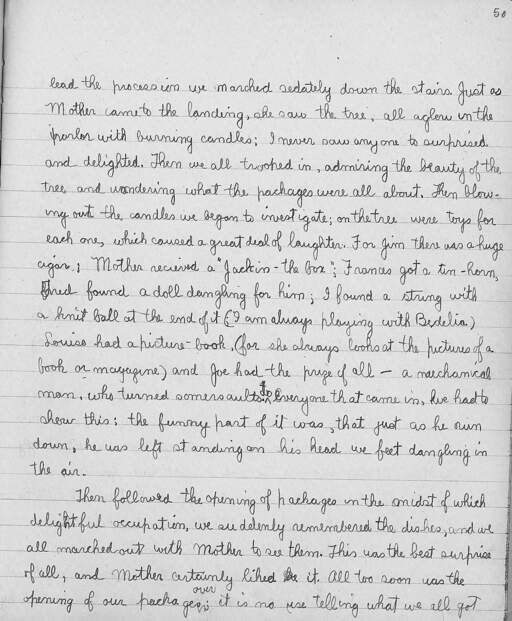 50
lead the procession we marched sedately down the stairs. Just as
Mother came to the landing, she saw the tree, all aglow in the
parlor with burning candles; I never saw anyone so surprised
and delighted. Then we all trooped in, admiring the beauty of the
tree and wondering what the packages were all about. Then blow-
ing out the candles we began to investigate; on the tree were toys for
each one, which caused a great deal of laughter. For Jim there was a huge
cigar; Mother recieved a "Jack-in-the box"; Frances got a tin-horn,
Fred found a doll dangling for him; I found a string with
a knit ball at the end of it (I am always playing with Bedelia)
Louise had a picture-book, (for she always looks at the pictures of a
book or magazine) and Joe had the prize of all — a mechanical
man, who turned somersaults; to everyone that came in, he had to
show this: the funny part of it was, that just as he run
down, he was left standing on his head we feet dangling in
the air.
Then followed the opening of packages in the midst of which
delightful occupation, we suddenly remembered the dishes, and we
all marched out with Mother to see them. This was the best surprise
of all, and Mother certainly liked it. All too soon was the
opening of our packages over; it is no use telling what we all got